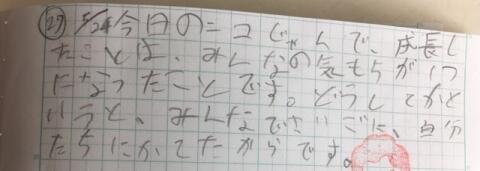 ㉗ 5/24 今日のニコじゃんで、成長し
たことは、みんなの気もちが1つ
になったことです。どうしてかと
いうと、みんなでさいごに、自分
たちにかてたからです。